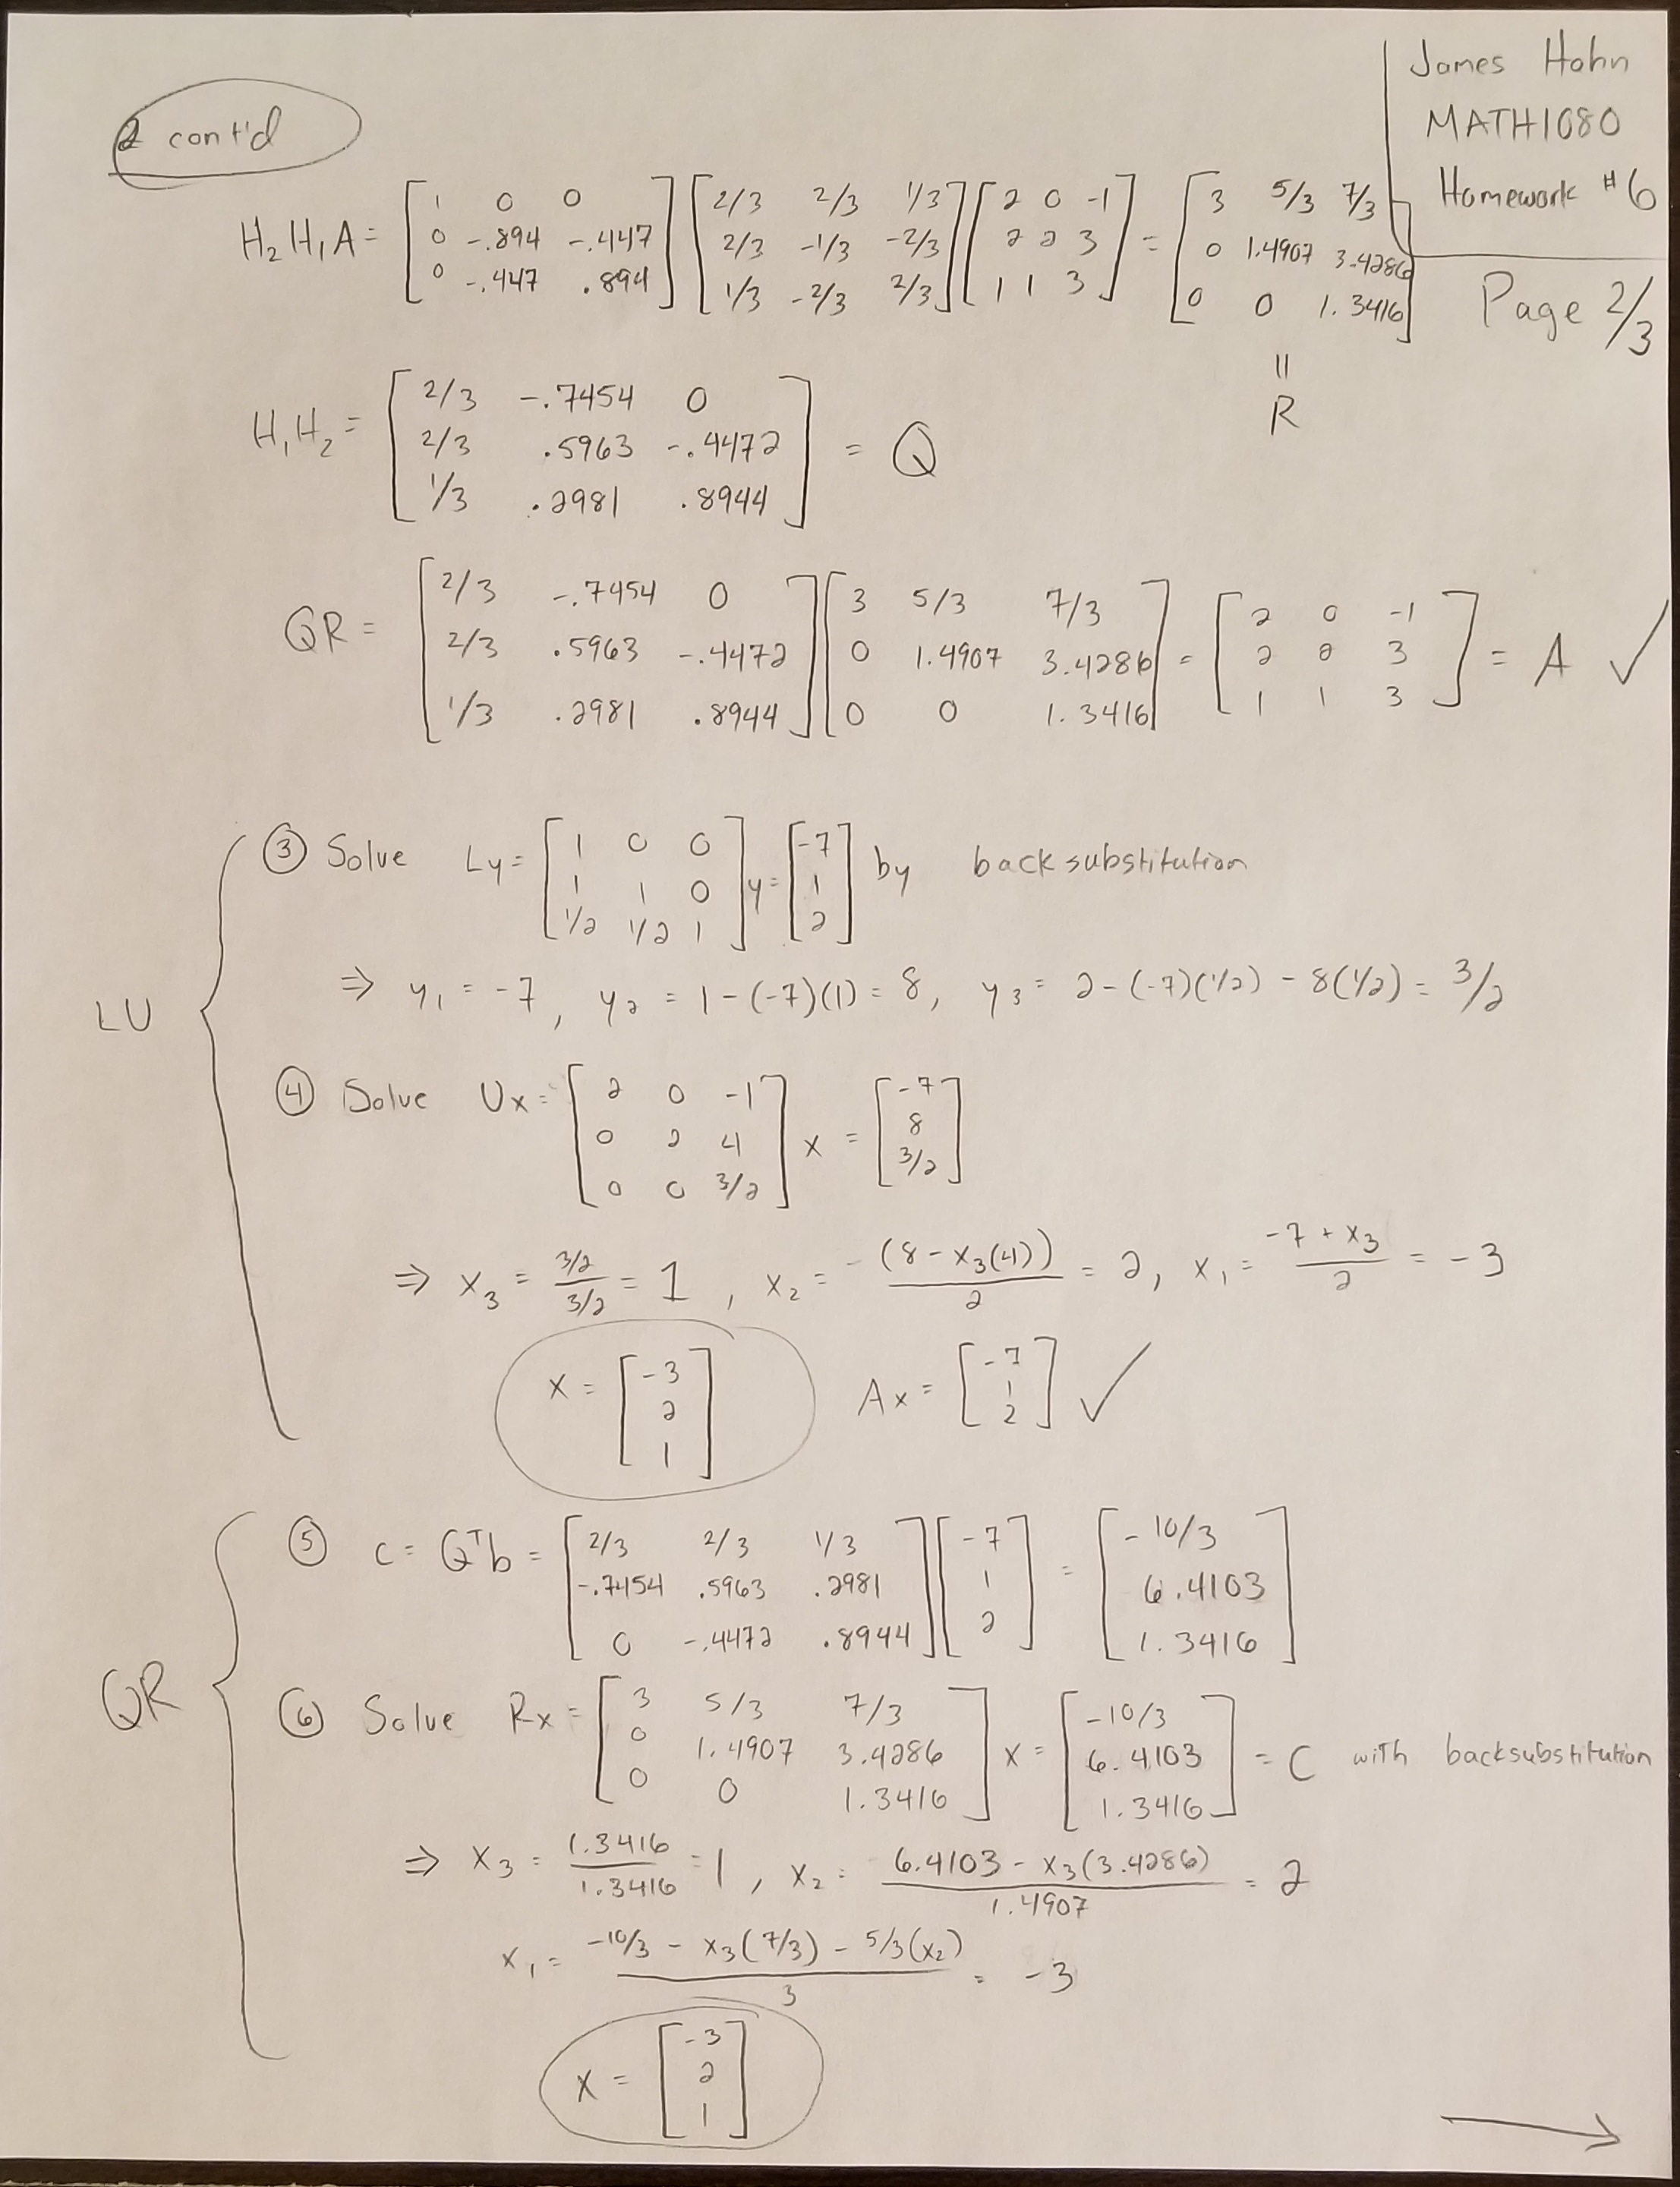 James Hahn
MATH1080
Homework #6
Page 2/3
2 cont'd
H₂H₁A = [1 0 0; 0 -.894 -.447; 0 -.447 .894] [2/3 2/3 1/3; 2/3 -1/3 -2/3; 1/3 -2/3 2/3] [2 0 -1; 2 2 3; 1 1 3] = [3 5/3 7/3; 0 1.4907 3.4286; 0 0 1.3416]
=
R
H₁H₂ = [2/3 -.7454 0; 2/3 .5963 -.4472; 1/3 .2981 .8944] = Q
QR = [2/3 -.7454 0; 2/3 .5963 -.4472; 1/3 .2981 .8944] [3 5/3 7/3; 0 1.4907 3.4286; 0 0 1.3416] = [2 0 -1; 2 2 3; 1 1 3] = A ✓
LU
③ Solve Ly = [1 0 0; 1 1 0; 1/2 1/2 1] y = [-7; 1; 2] by backsubstitution
⇒ y₁ = -7, y₂ = 1-(-7)(1) = 8, y₃ = 2-(-7)(1/2) - 8(1/2) = 3/2
④ Solve Ux = [2 0 -1; 0 2 4; 0 0 3/2] x = [-7; 8; 3/2]
⇒ x₃ = (3/2)/(3/2) = 1, x₂ = (8-x₃(4))/2 = 2, x₁ = (-7+x₃)/2 = -3
x = [-3; 2; 1] Ax = [-7; 1; 2] ✓
QR
⑤ c = Qᵀb = [2/3 2/3 1/3; -.7454 .5963 .2981; 0 -.4472 .8944] [-7; 1; 2] = [-10/3; 6.4103; 1.3416]
⑥ Solve Rx = [3 5/3 7/3; 0 1.4907 3.4286; 0 0 1.3416] x = [-10/3; 6.4103; 1.3416] = C with backsubstitution
⇒ x₃ = 1.3416/1.3416 = 1, x₂ = (6.4103 - x₃(3.4286))/1.4907 = 2
x₁ = (-10/3 - x₃(7/3) - 5/3(x₂))/3 = -3
x = [-3; 2; 1]
→